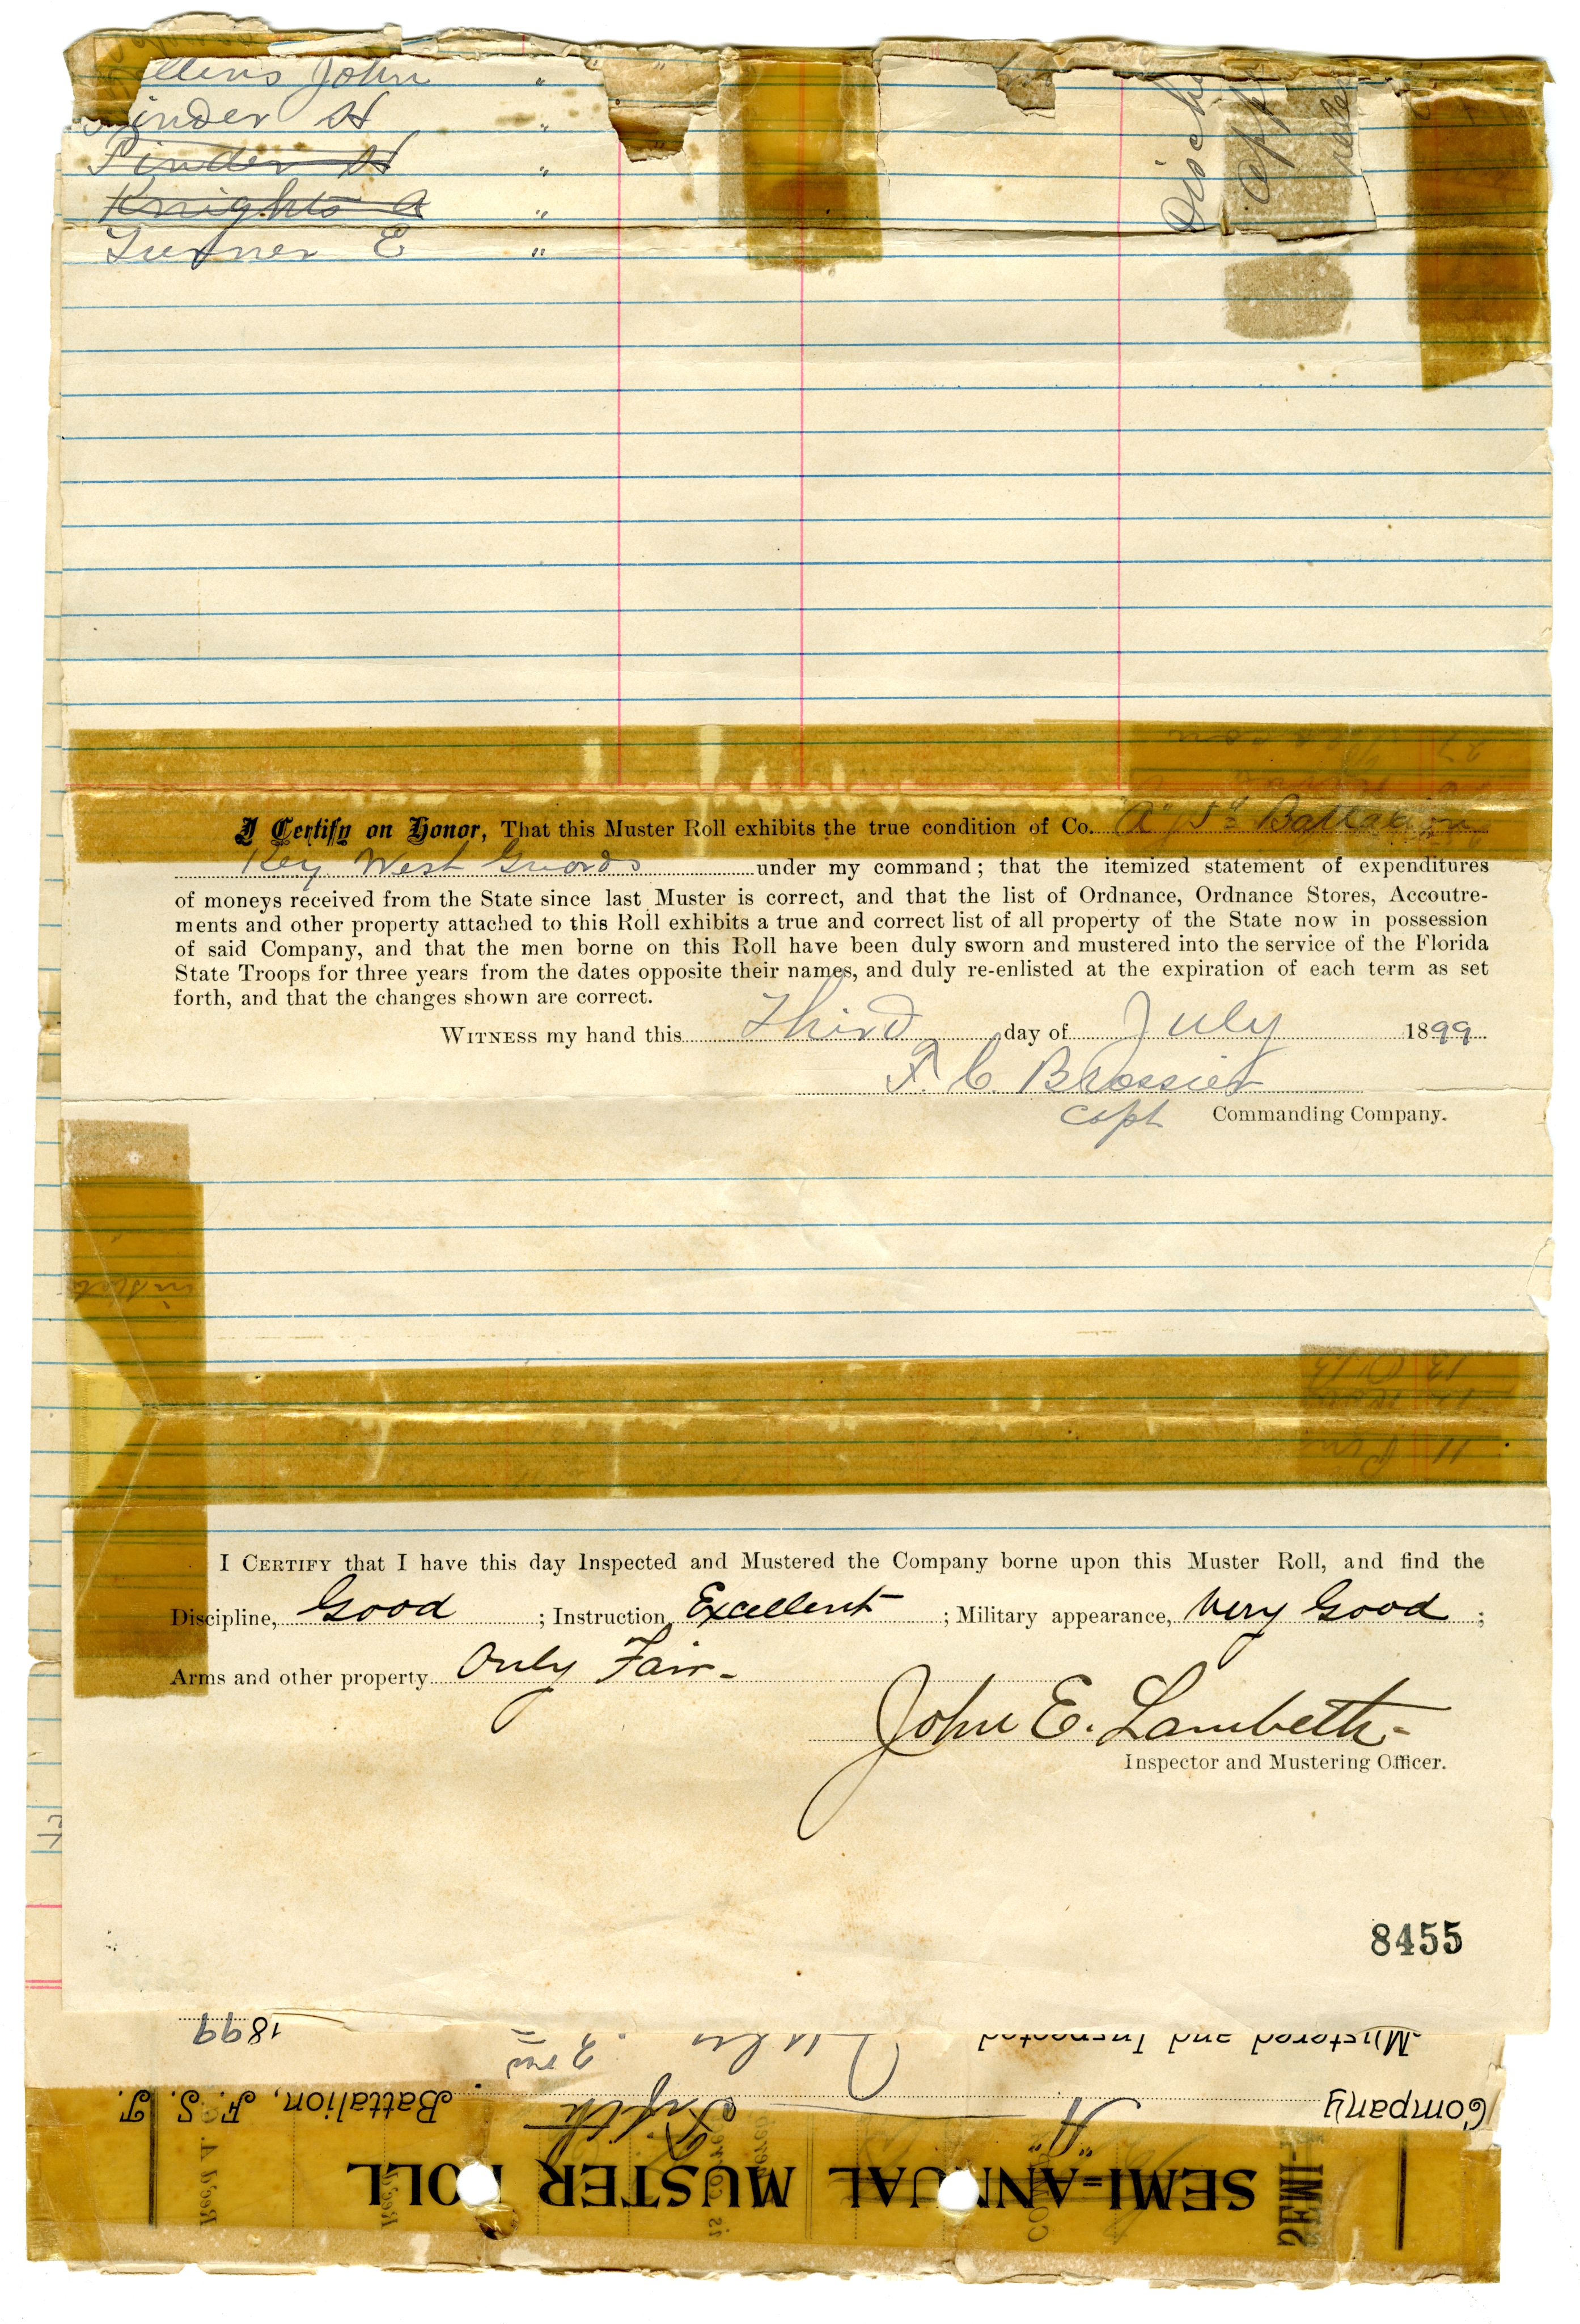 John "
Pinder A "
Pinder A "
Knights A "
Turner E "
Disch
I Certify on Honor, That this Muster Roll exhibits the true condition of Co. "A" 5th Battalion
Key West Guards under my command; that the itemized statement of expenditures
of moneys received from the State since last Muster is correct, and that the list of Ordnance, Ordnance Stores, Accoutre-
ments and other property attached to this Roll exhibits a true and correct list of all property of the State now in possession
of said Company, and that the men borne on this Roll have been duly sworn and mustered into the service of the Florida
State Troops for three years from the dates opposite their names, and duly re-enlisted at the expiration of each term as set
forth, and that the changes shown are correct.
WITNESS my hand this Third day of July 1899
F. C. Brossier
Capt Commanding Company.
I CERTIFY that I have this day Inspected and Mustered the Company borne upon this Muster Roll, and find the
Discipline, Good ; Instruction Excellent ; Military appearance, Very Good ;
Arms and other property Only Fair-
John E. Lambeth-
Inspector and Mustering Officer.
8455
SEMI-ANNUAL MUSTER ROLL
Company "A" Fifth Battalion, F. S. T.
Mustered and Inspected July 3rd 1899